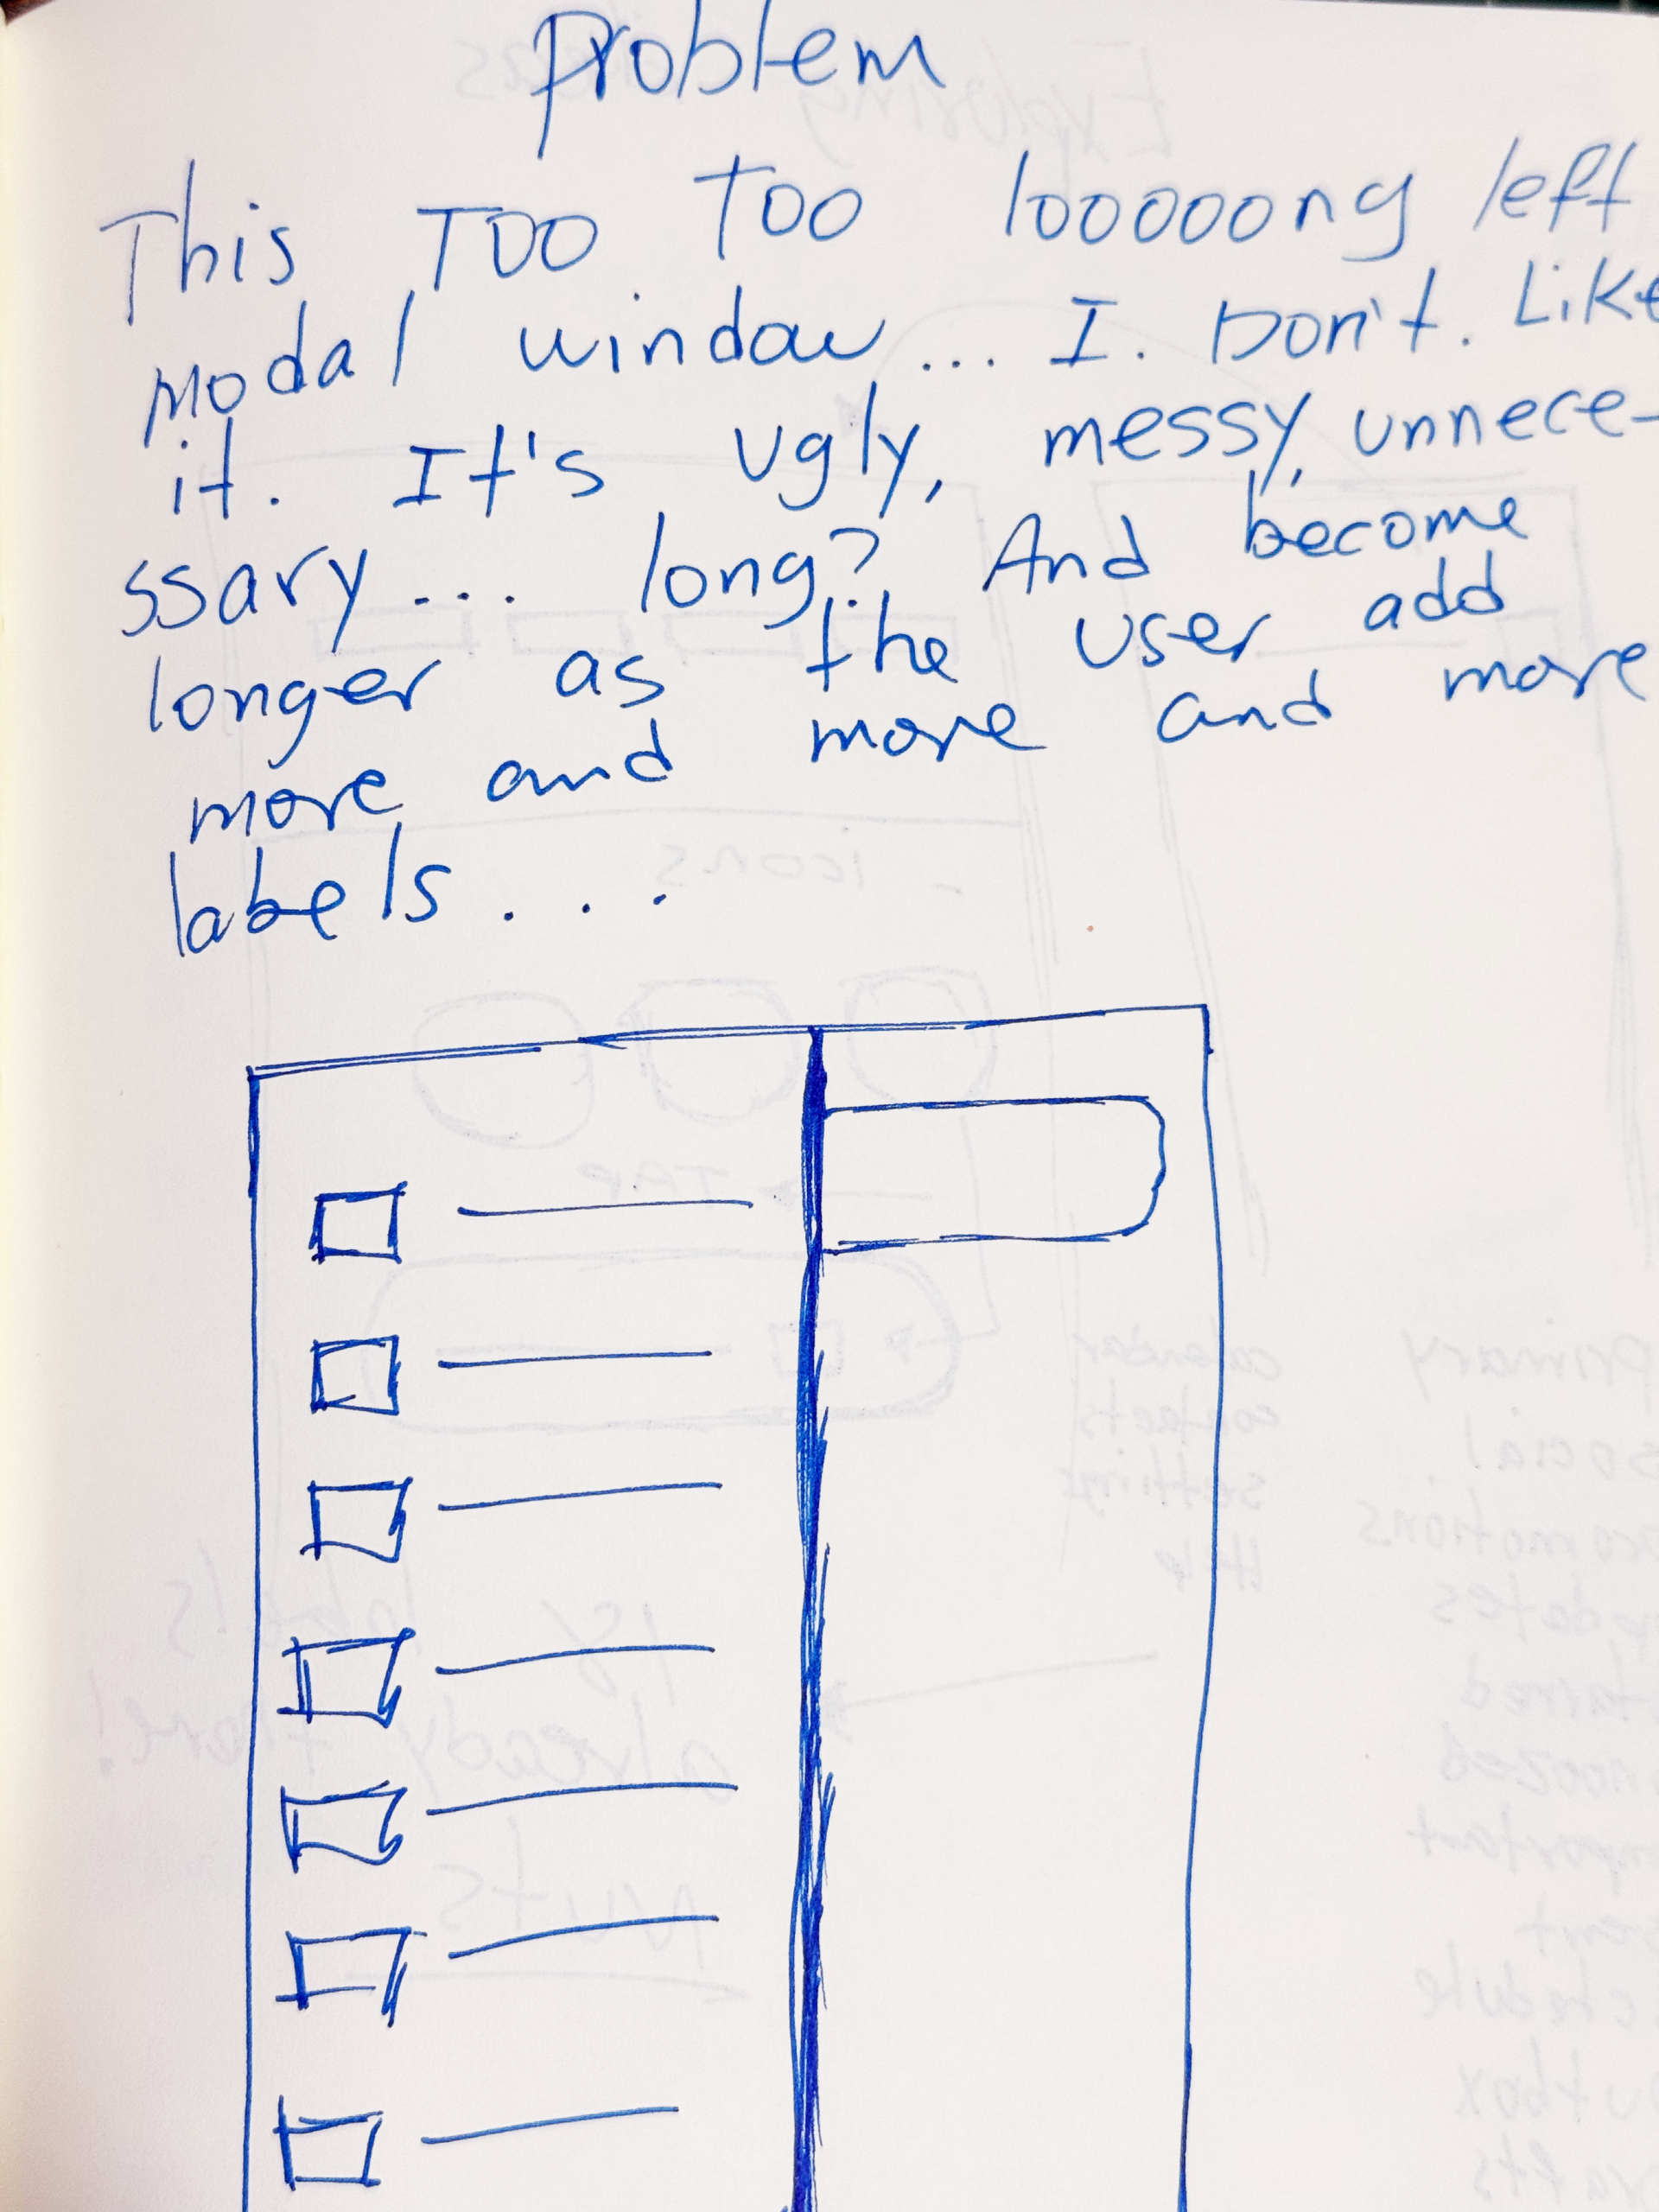 Problem
This TOO TOO looooong left
modal window... I. Don't. Like
it. It's ugly, messy, unnece-
ssary... long? And become
longer as the user add
more and more and more
labels...